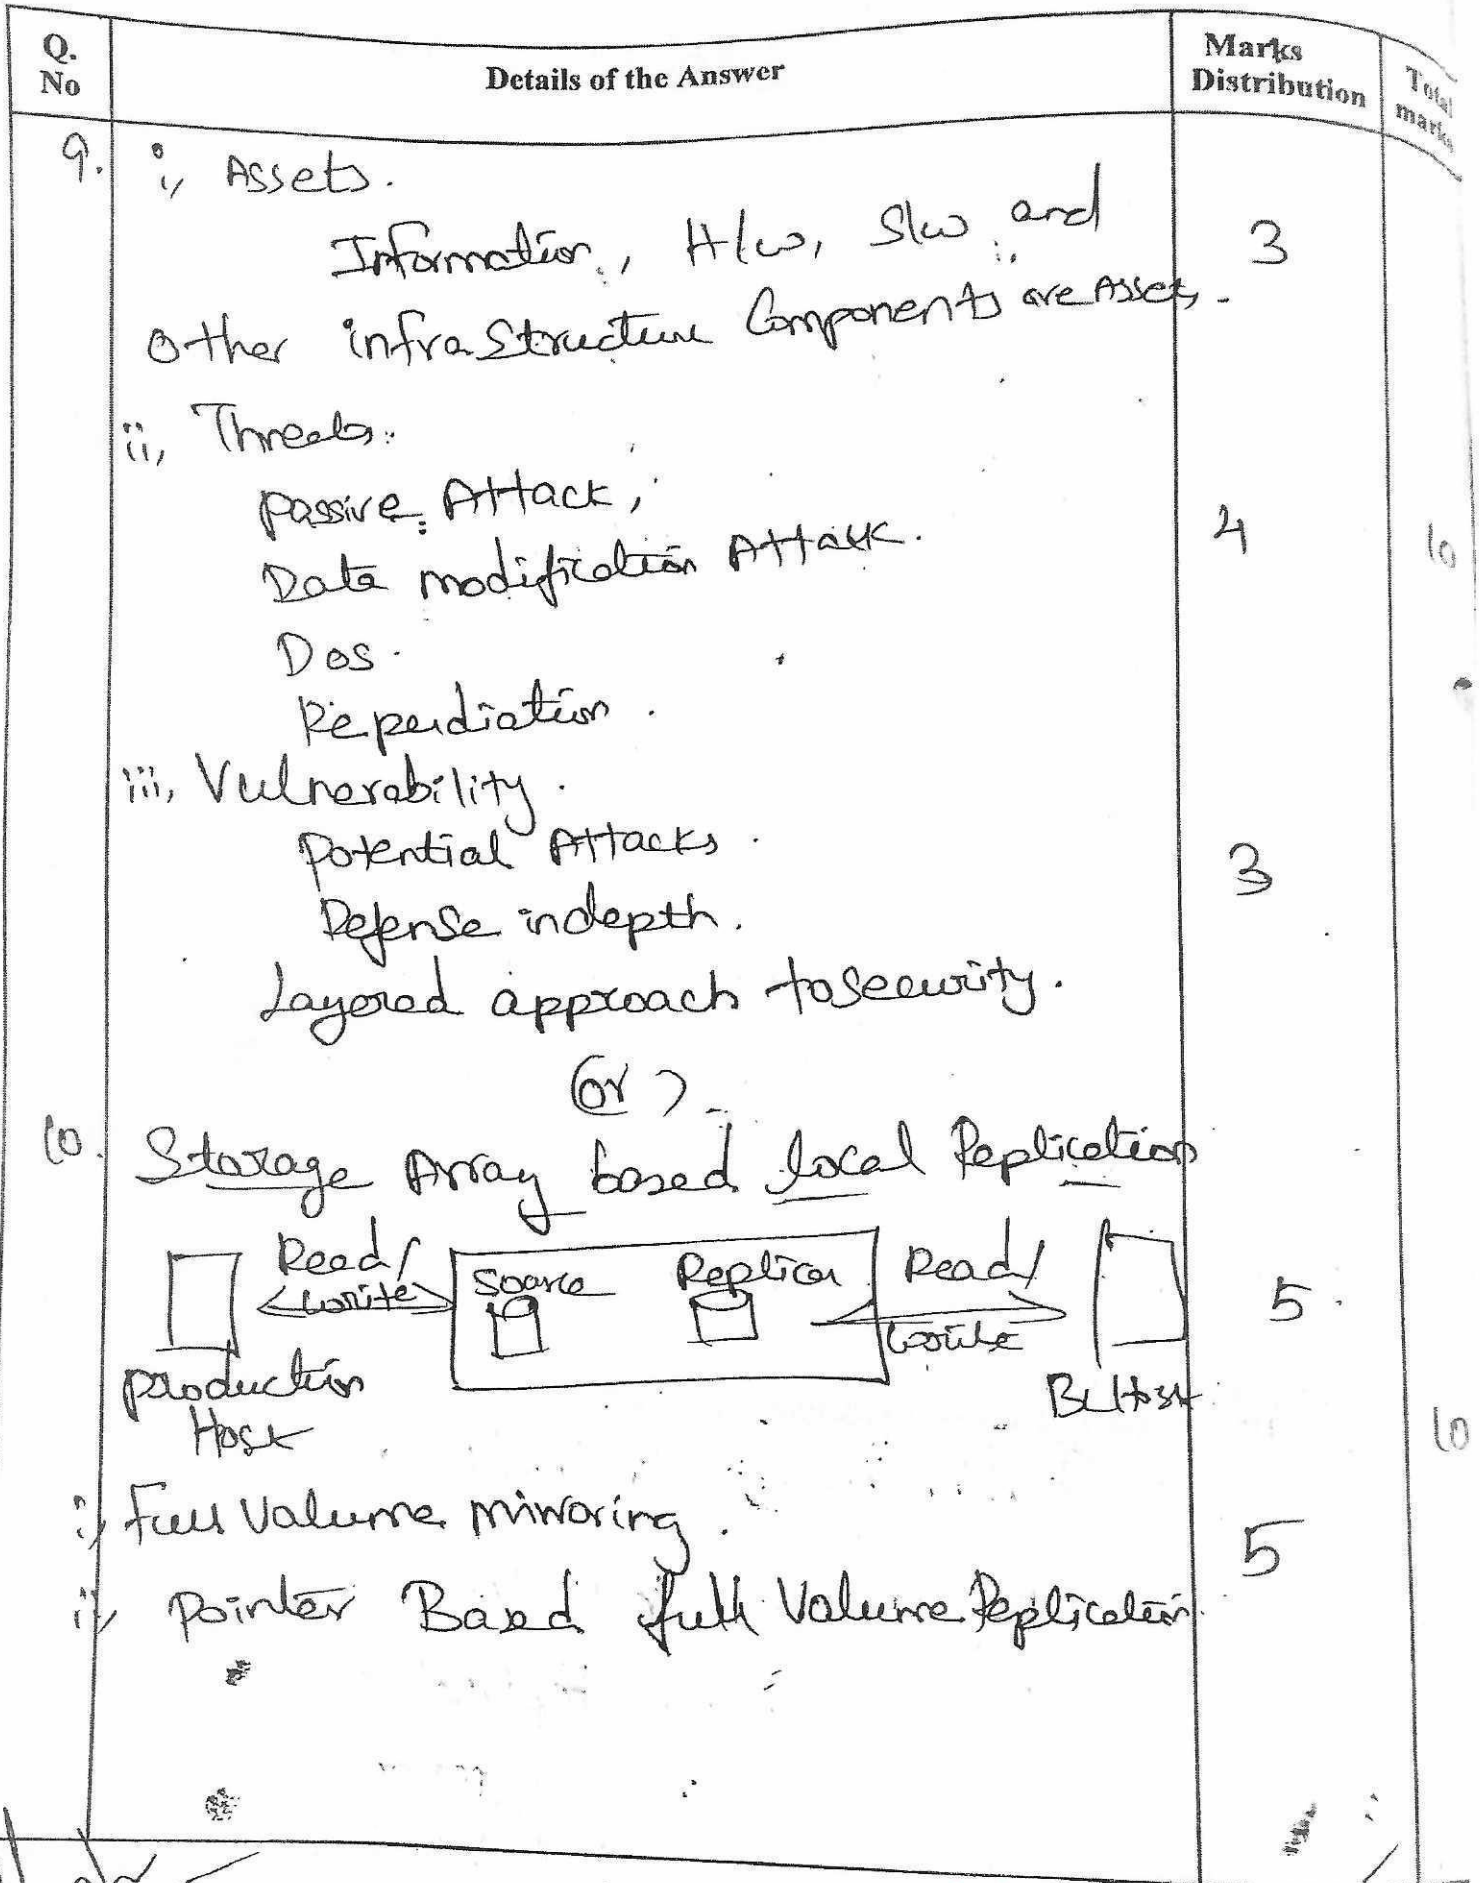 Q. No
Details of the Answer
Marks Distribution
Total marks
9. i, Assets.
Information, H/w, S/w, and
3
Other infraStructure Components are Assets.
ii, Threats.
passive Attack,
4
10
Data modification Attack.
Dos.
Repudiation.
iii, Vulnerability.
Potential Attacks.
3
Defense indepth.
Layered approach to security.
(or)
10. Storage Array based local Replication
Read/ write
Source
Replica
Read/ write
5.
production Host
BC Host
10
i, Full Volume mirroring.
5
ii, Pointer Based full Volume Replication.